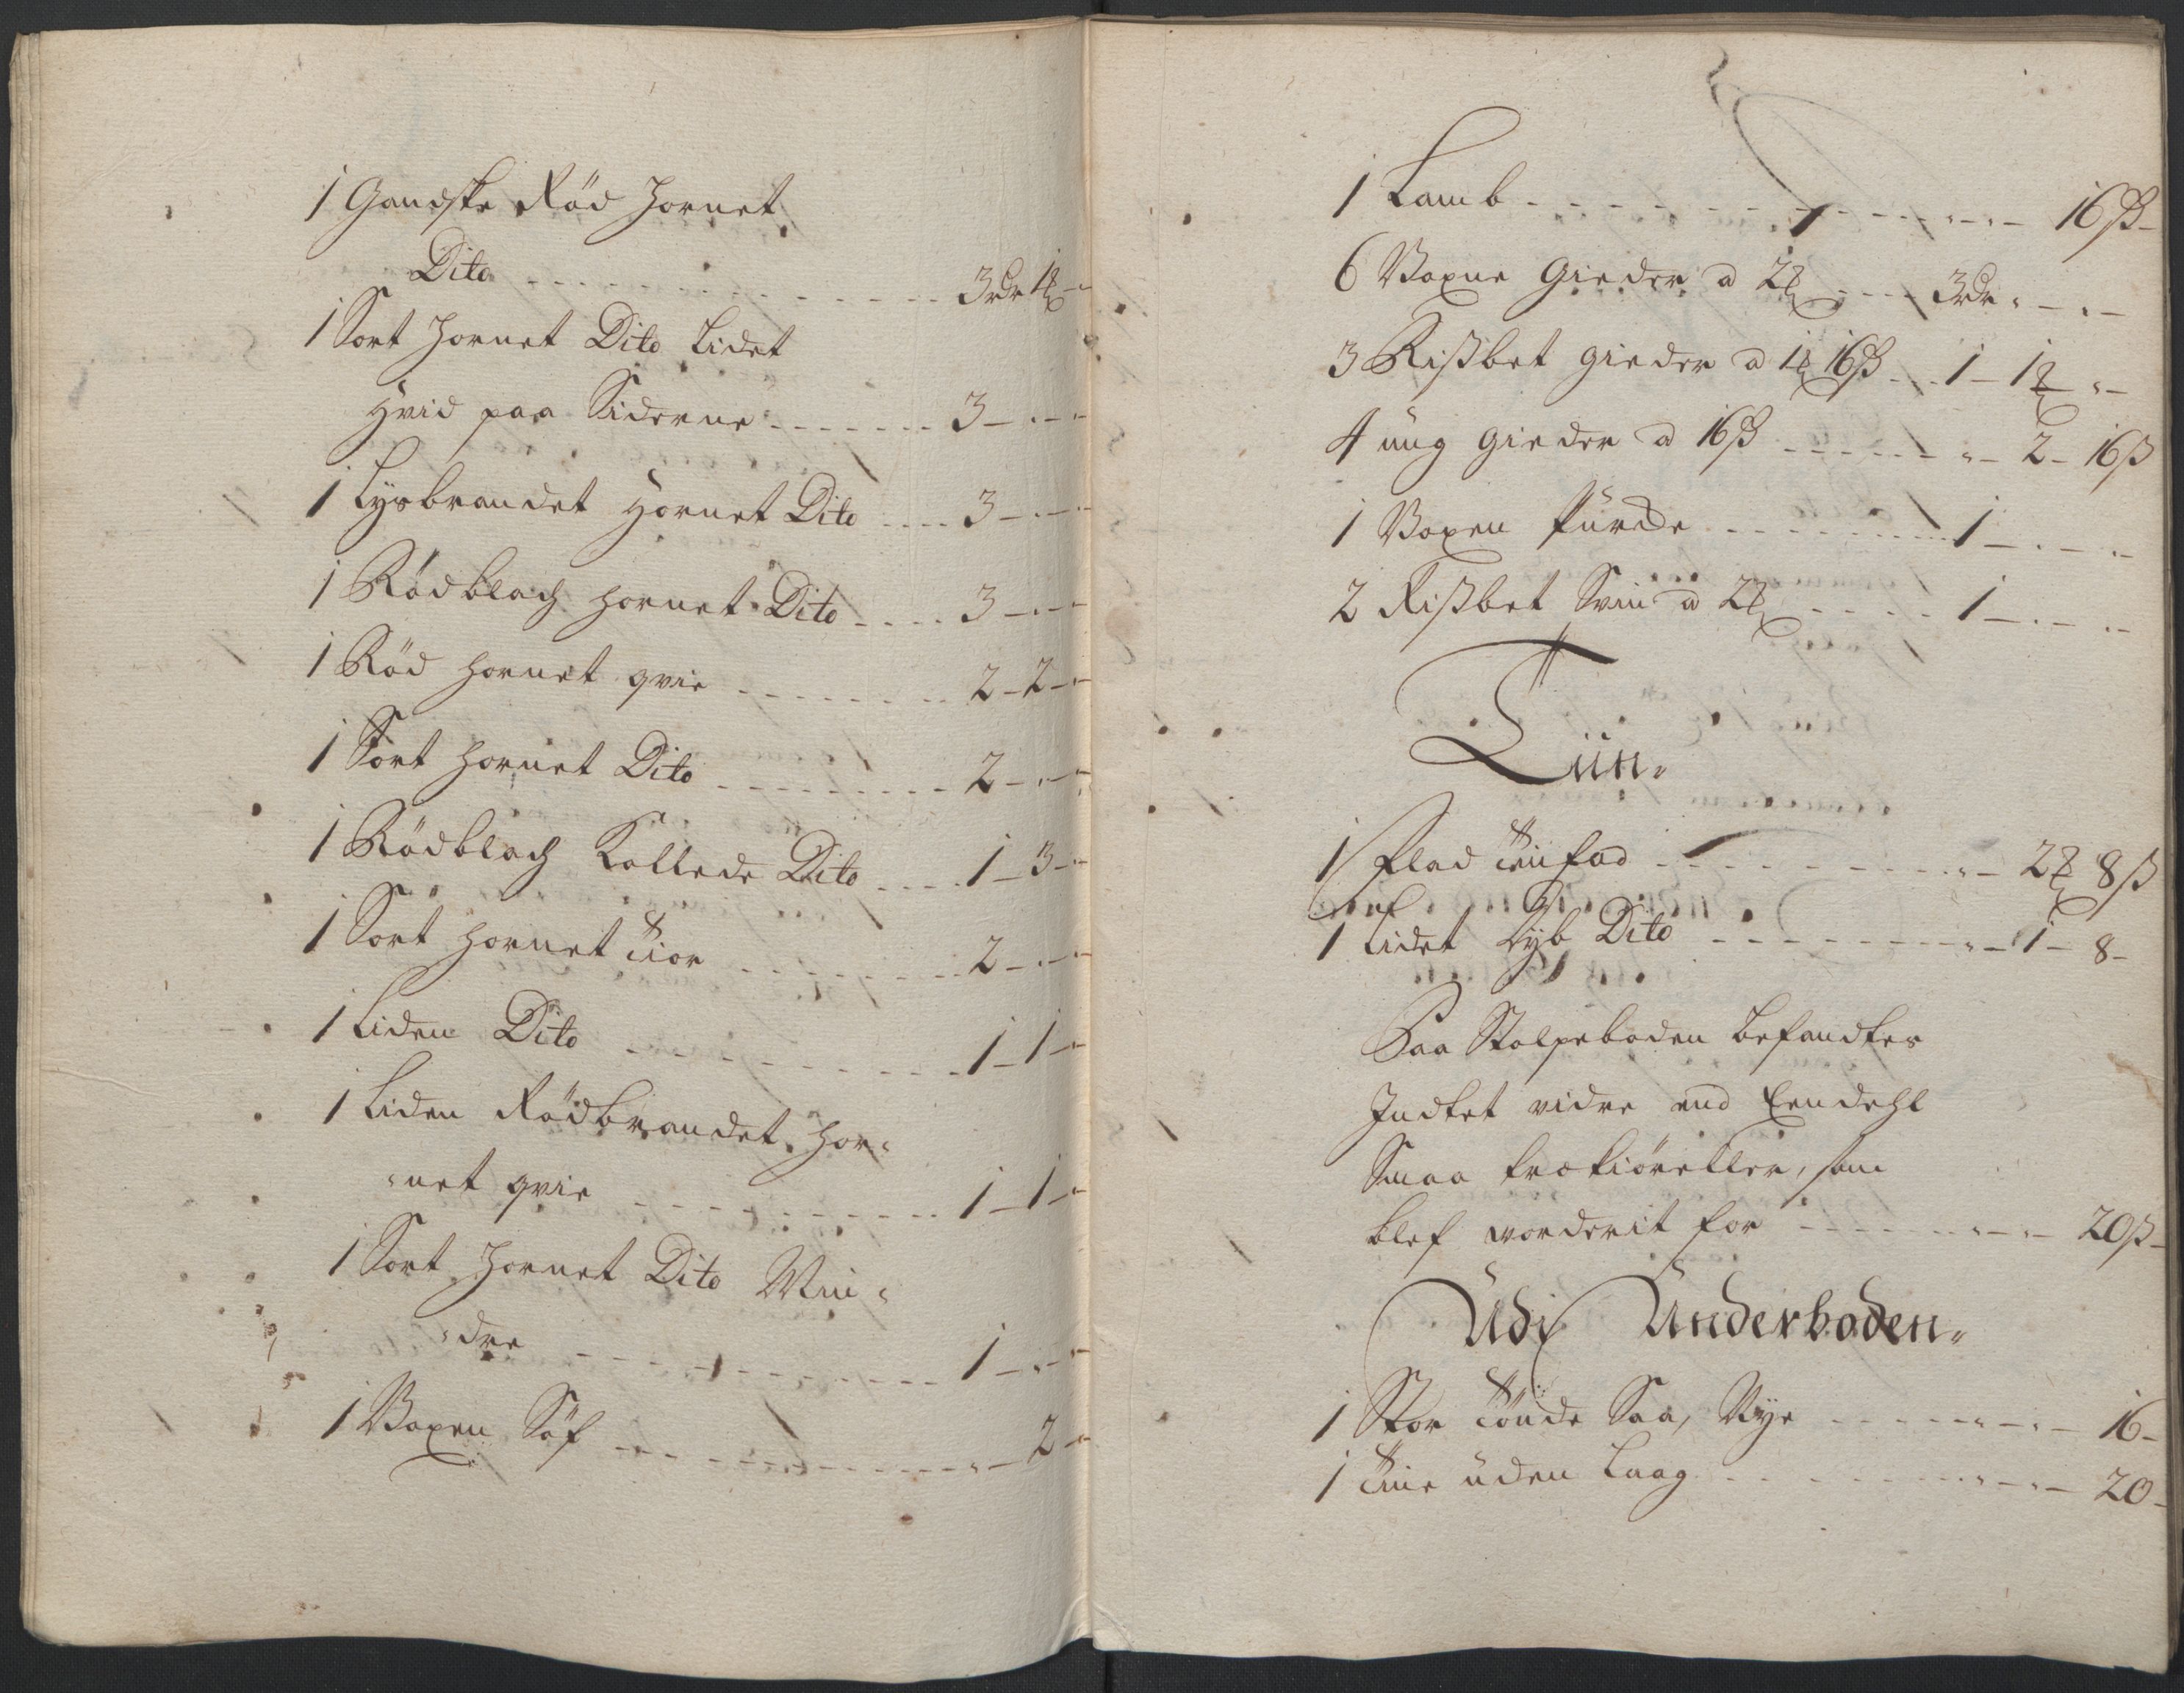 1 Gandske Rød Hornet
Dito - - - - - 3rdr 1
1 Sort Hornet Dito Lidet
Hvid paa Siderne - - - - 3 - " -
1 Lysbrandet Hornet Dito - - - 3 - " -
1 Rødblach hornet Dito - - - 3 - " -
1 Rød hornet qvie - - - - 2 - 2 -
1 Sort hornet Dito - - - - 2 - " -
1 Rødblach Kollede Dito - - - 1 - 3 -
1 Sort hornet tior - - - - 2 - " -
1 Liden Dito - - - - 1 - 1 -
1 Liden Rødbrandet Hor"
"net qvie - - - - 1 - 1 -
1 Sort Hornet Dito Min"
"dre - - - - 1 - " -
1 Voxen Søf - - - - " - 2 -
1 Lamb - - - - " - " - 16ß -
6 Voxne Gieder a 2 - - - 3rdr " - " -
3 Risbet gieder a 1 16ß - - 1 - 1 " -
4 ung gieder a 16ß - - - " - 2 - 16ß
1 Voxen Purche - - - - 1 - " - " -
2 Risbet Sviin a 2 - - - 1 - " - " -
Tiin"
1 flad tiin fad - - - - " - 2 8ß
1 Lidet dyb Dito - - - - " - 1 - 8 -
Paa Stolpeboden befandtes
Indtet vidre end Eendehl
Smaa træ , som
blef vorderit for - - - " - " - 20ß -
Udi Underboden"
1 Stor tønde Saa, Nye - - - " - " - 16 -
1 tine uden Laag - - - " - " - 20 -